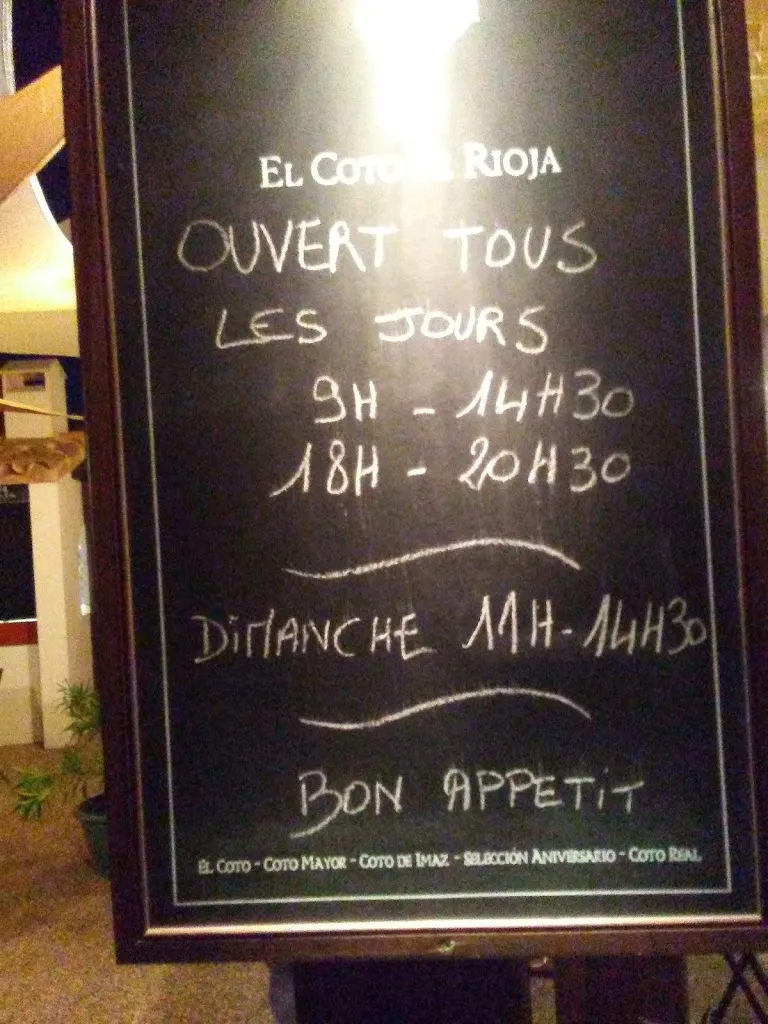 El Coto de Rioja
OUVERT TOUS
LES JOURS
9H - 14H30
18H - 20H30
DiMANCHE 11H-14H30
BON APPETiT
El Coto - Coto Mayor - Coto de Imaz - Selección Aniversario - Coto Real